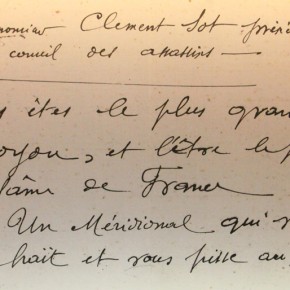 Clement Sot prési
conseil des assassins —
s êtes le plus gran
oyou, et l'être le p
âme de France
Un Méridional qui v
hait et vous pisse au